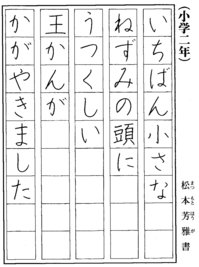 (小学二年)
いちばん小さな
ねずみの頭に
うつくしい
王かんが
かがやきました
松本芳雅書
まつもとほうが